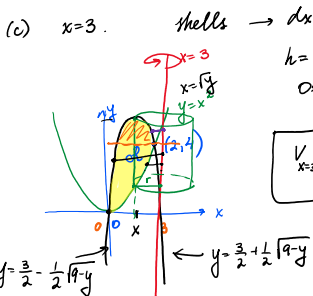 (c) x=3. shells → dx
x=3
h=
x=√y
0
y=x²
y
(2,4)
h
r
V
x=
x
0 0 x 3
y=3/2-1/2√9-y
y=3/2+1/2√9-y